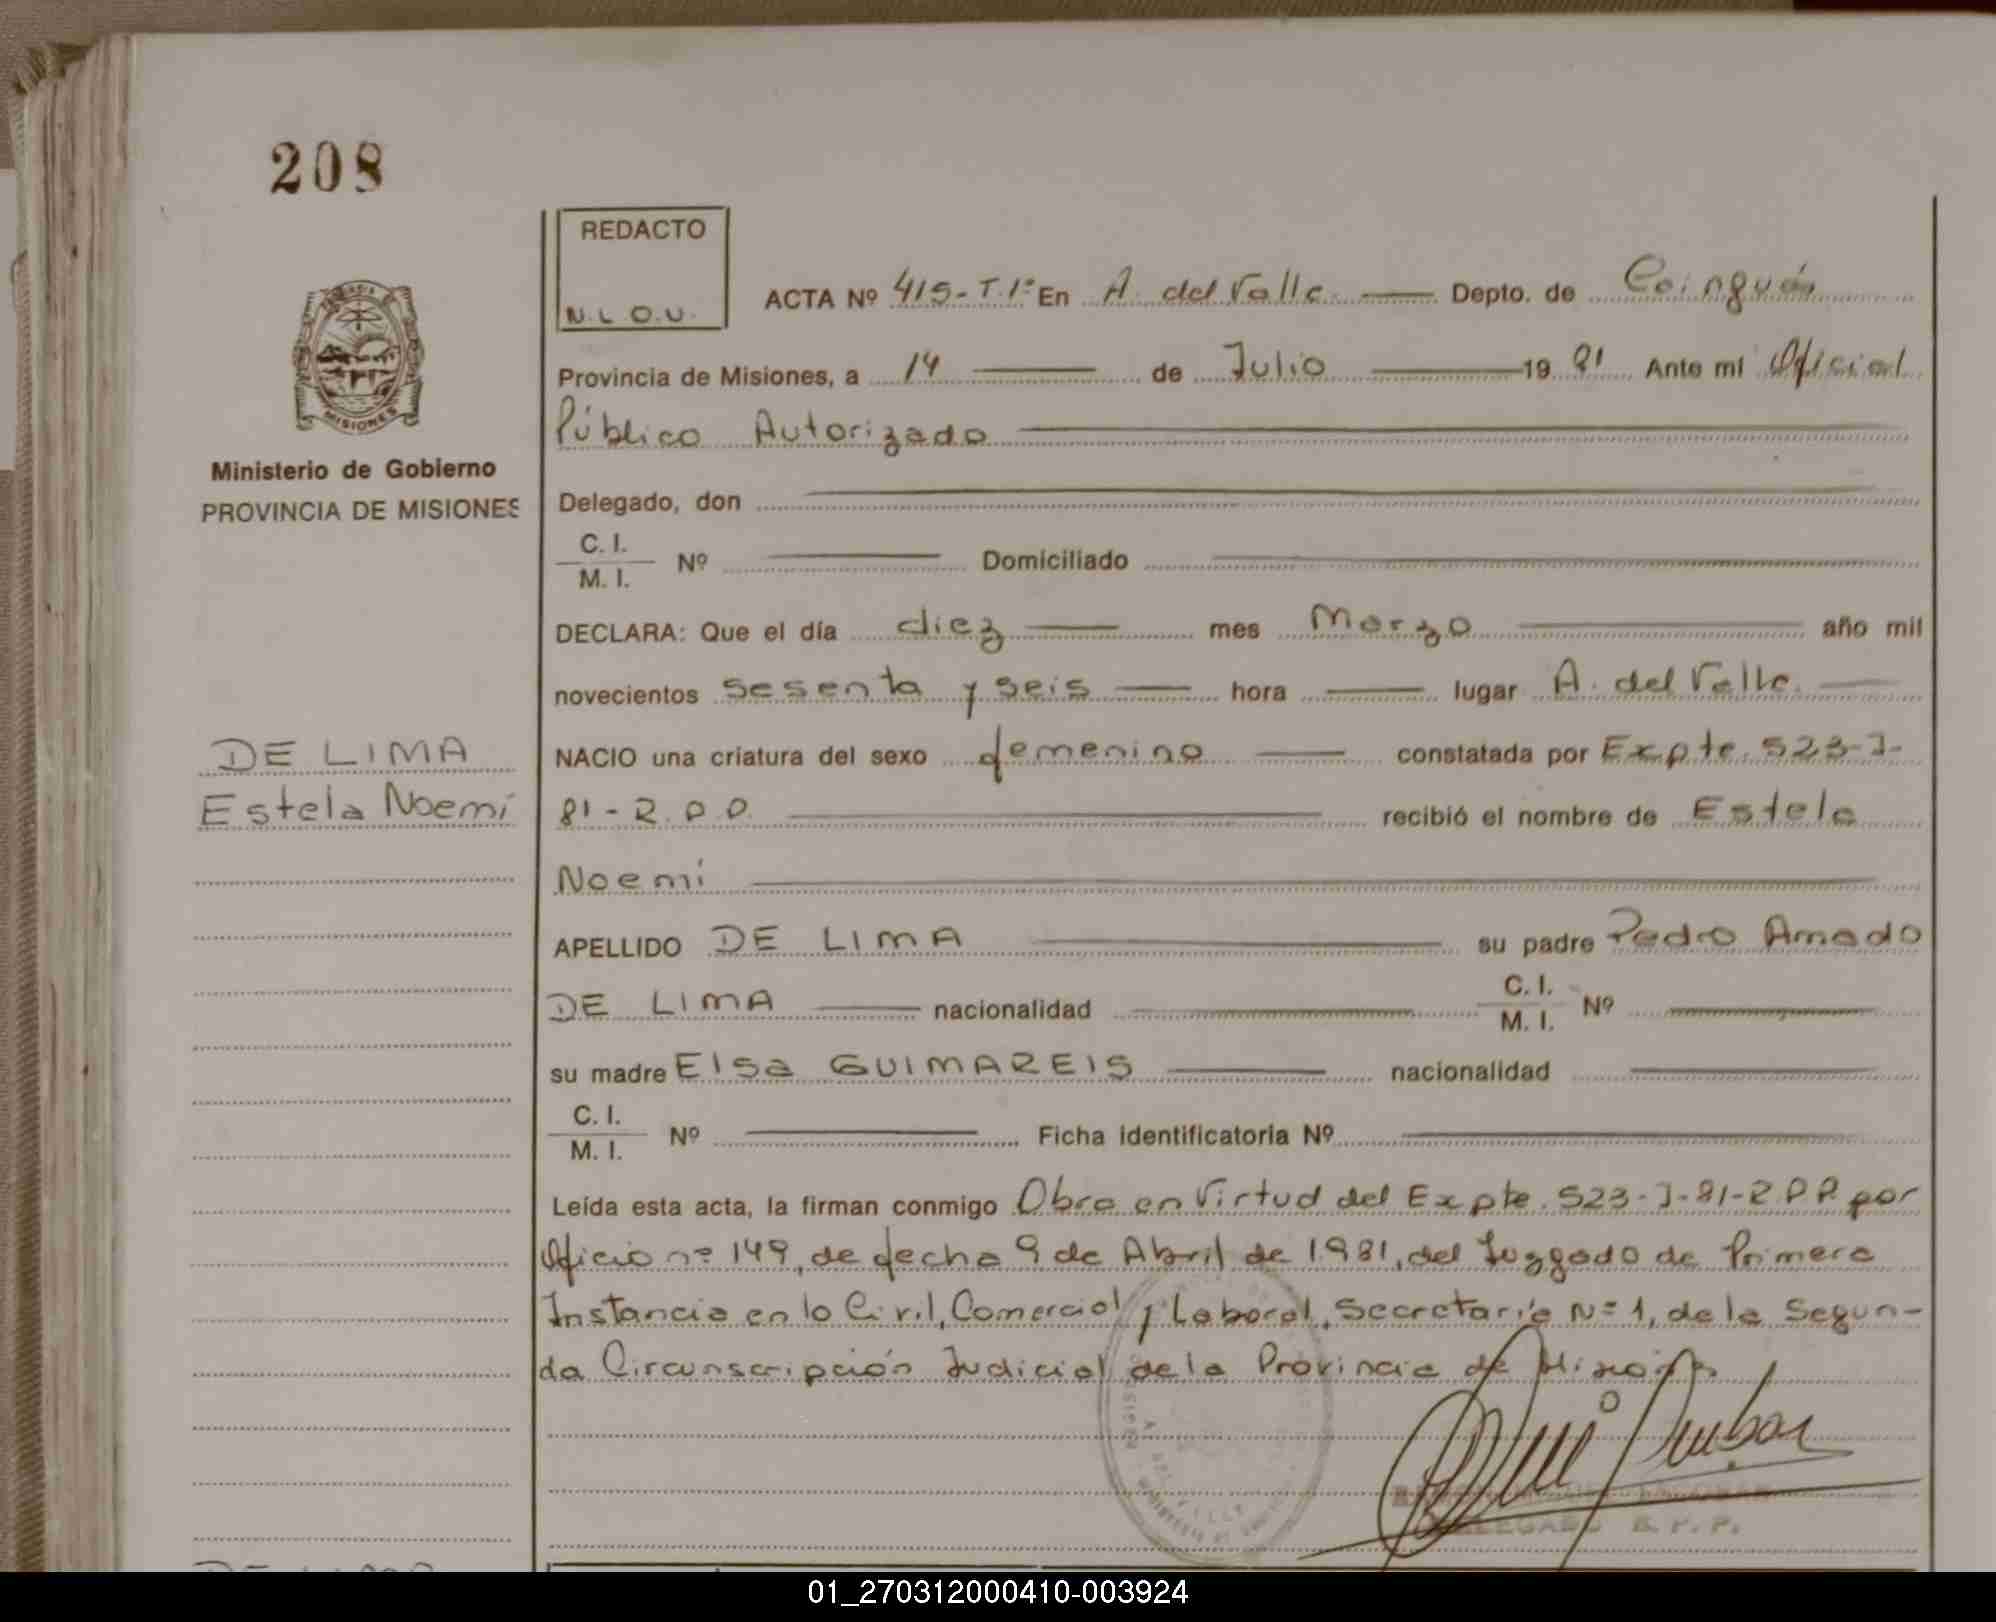 208
REDACTO
N.L O.U.
ACTA Nº 415-T.1º En A. del Valle Depto. de Cainguás
Provincia de Misiones, a 14 de Julio 1981 Ante mí Oficial
Público Autorizado
Ministerio de Gobierno
PROVINCIA DE MISIONES
Delegado, don
C. I.
M. I.
Nº Domiciliado
DECLARA: Que el día diez mes Marzo año mil
novecientos sesenta y seis hora lugar A. del Valle.
DE LIMA
Estela Noemí
NACIO una criatura del sexo femenino constatada por Expte. 523-J-
81-R.P.P. recibió el nombre de Estela
Noemí
APELLIDO DE LIMA su padre Pedro Amado
DE LIMA nacionalidad C. I. M. I. Nº
su madre Elsa GUIMAREIS nacionalidad
C. I.
M. I.
Nº Ficha identificatoria Nº
Leída esta acta, la firman conmigo Obra en Virtud del Expte. 523-J-81-R.P.P. por
Oficio nº 149, de fecha 9 de Abril de 1981, del Juzgado de Primera
Instancia en lo Civil, Comercial y Laboral, Secretaría Nº 1, de la Segun-
da Circunscripción Judicial de la Provincia de Misiones
DELEGADO R.P.P.
01_270312000410-003924